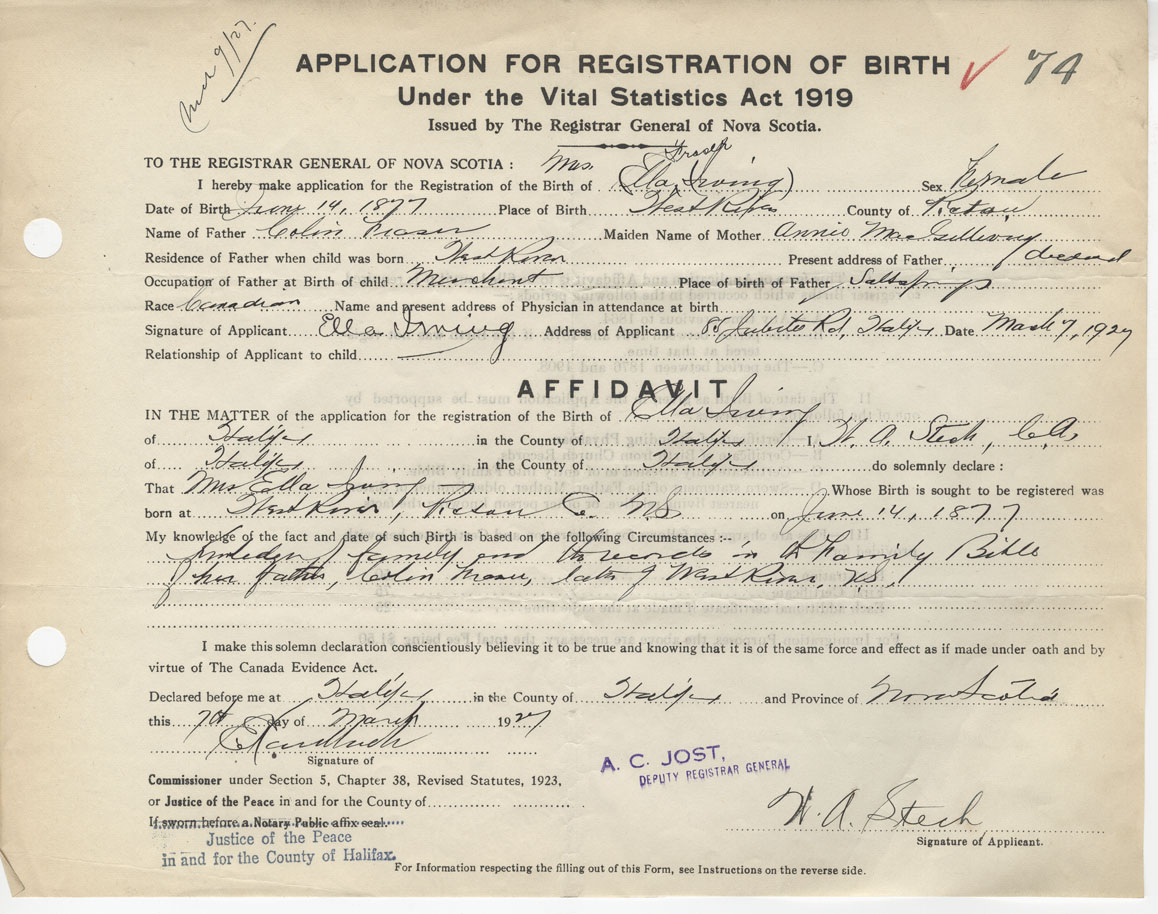 Mch 9/27.
APPLICATION FOR REGISTRATION OF BIRTH 74
Under the Vital Statistics Act 1919
Issued by The Registrar General of Nova Scotia.
TO THE REGISTRAR GENERAL OF NOVA SCOTIA : Mrs. Fraser
I hereby make application for the Registration of the Birth of (Ella Irving) Sex Female
Date of Birth June 14, 1877 Place of Birth West River County of Pictou
Name of Father Colin Fraser Maiden Name of Mother Annie MacGillivray
Residence of Father when child was born West River Present address of Father deceased
Occupation of Father at Birth of child Merchant Place of birth of Father Saltsprings
Race Canadian Name and present address of Physician in attendance at birth
Signature of Applicant Ella Irving Address of Applicant 85 Jubilee Rd, Halifax Date March 7, 1927
Relationship of Applicant to child
AFFIDAVIT
IN THE MATTER of the application for the registration of the Birth of Ella Irving
of Halifax in the County of Halifax I, W. A. Stech, C.A.
of Halifax in the County of Halifax do solemnly declare :
That Mrs Ella Irving Whose Birth is sought to be registered was
born at West River, Pictou Co. N.S. on June 14, 1877
My knowledge of the fact and date of such Birth is based on the following Circumstances :--
Knowledge of family and the records in the Family Bible
of her father, Colin Fraser, late of West River, N.S.
I make this solemn declaration conscientiously believing it to be true and knowing that it is of the same force and effect as if made under oath and by
virtue of The Canada Evidence Act.
Declared before me at Halifax in the County of Halifax and Province of Nova Scotia
this 7th day of March 1927
Signature of
A. C. JOST,
DEPUTY REGISTRAR GENERAL
Commissioner under Section 5, Chapter 38, Revised Statutes, 1923,
or Justice of the Peace in and for the County of
W. A. Stech
If sworn before a Notary Public affix seal.
Signature of Applicant.
Justice of the Peace
in and for the County of Halifax.
For Information respecting the filling out of this Form, see Instructions on the reverse side.